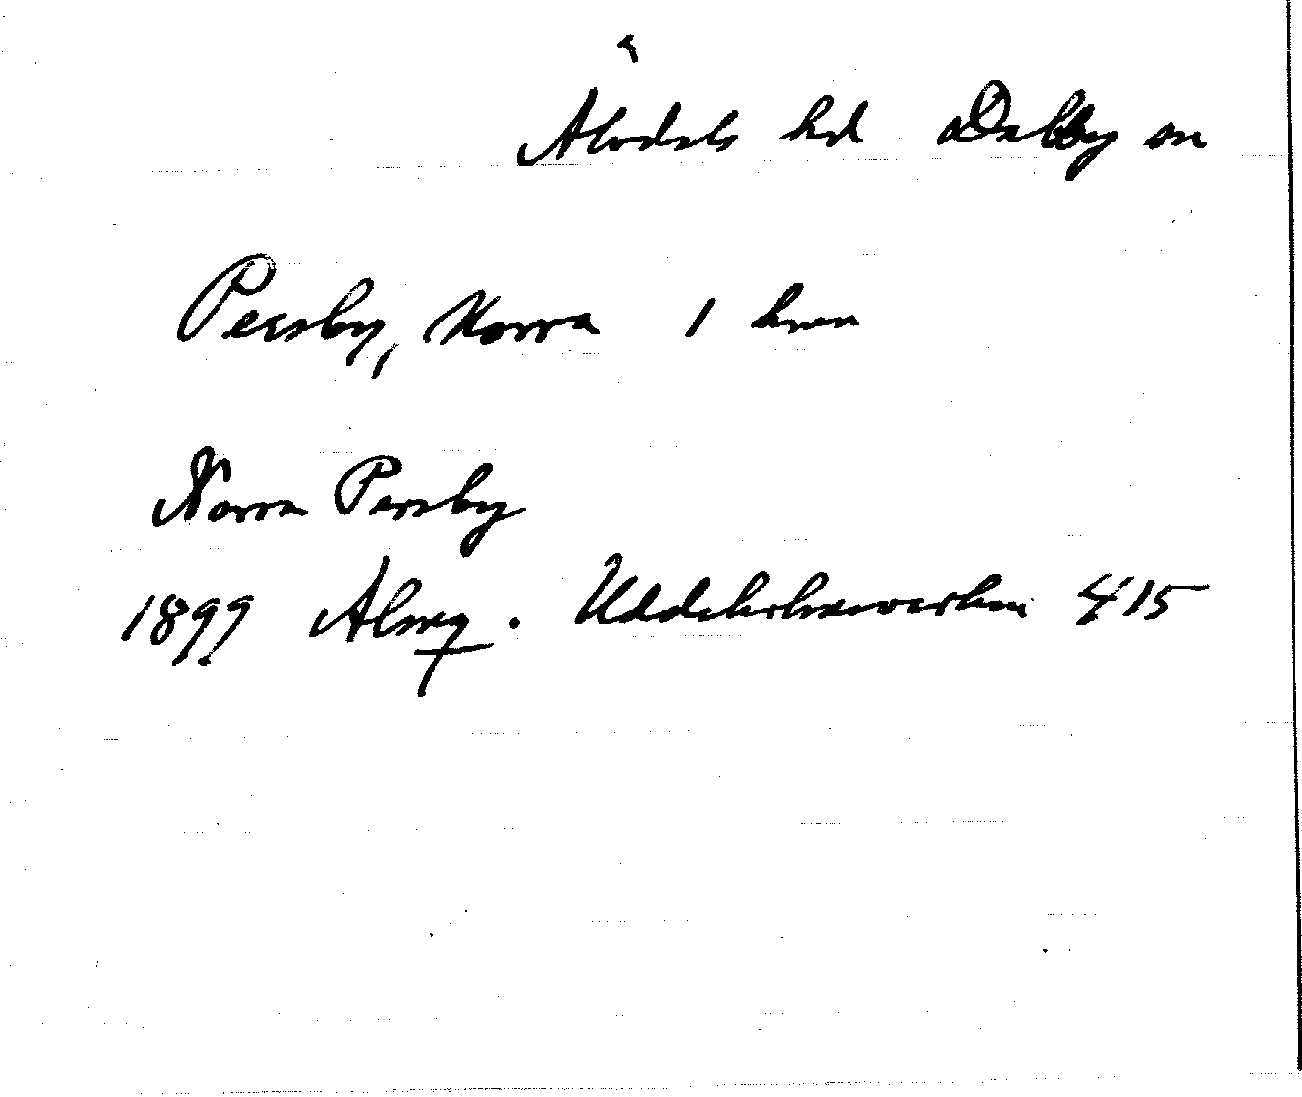 Älvdals hd Dalby sn
Persby, Norra 1 hmn
Norra Persby
1899 Almq. Uddeholmsverken 415